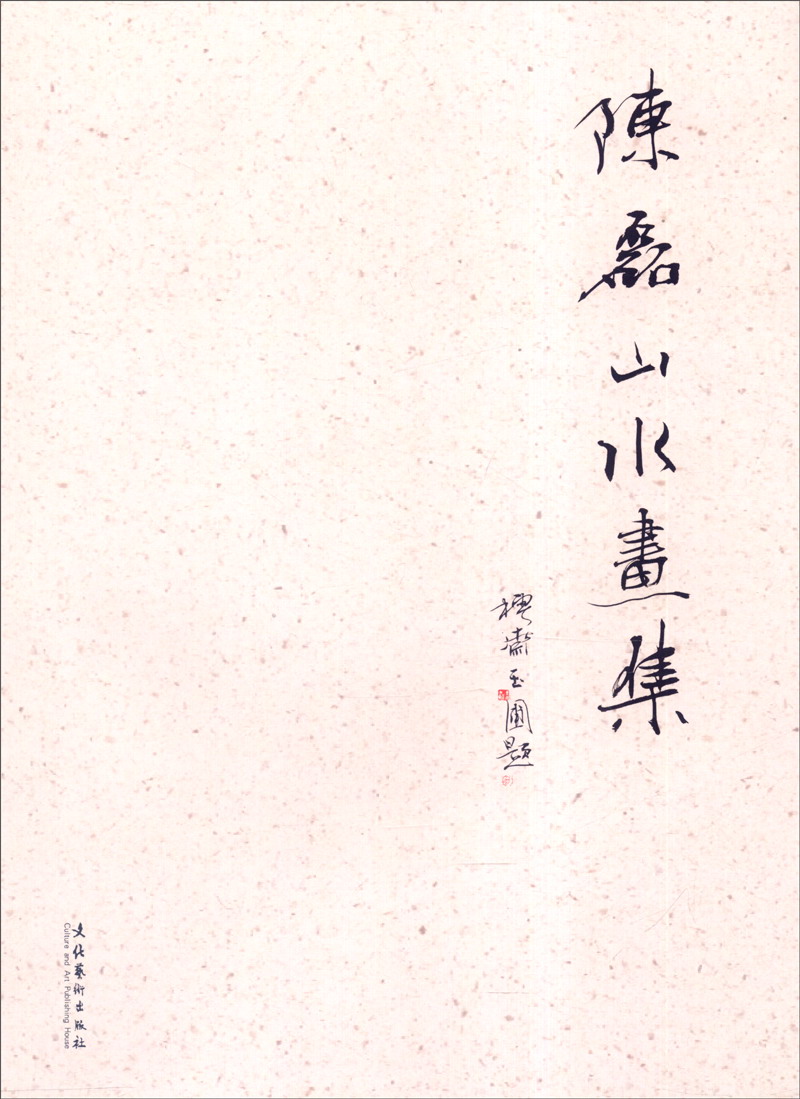 陳磊山水畫集
禮齋玉圃題
文化藝術出版社
Culture and Art Publishing House